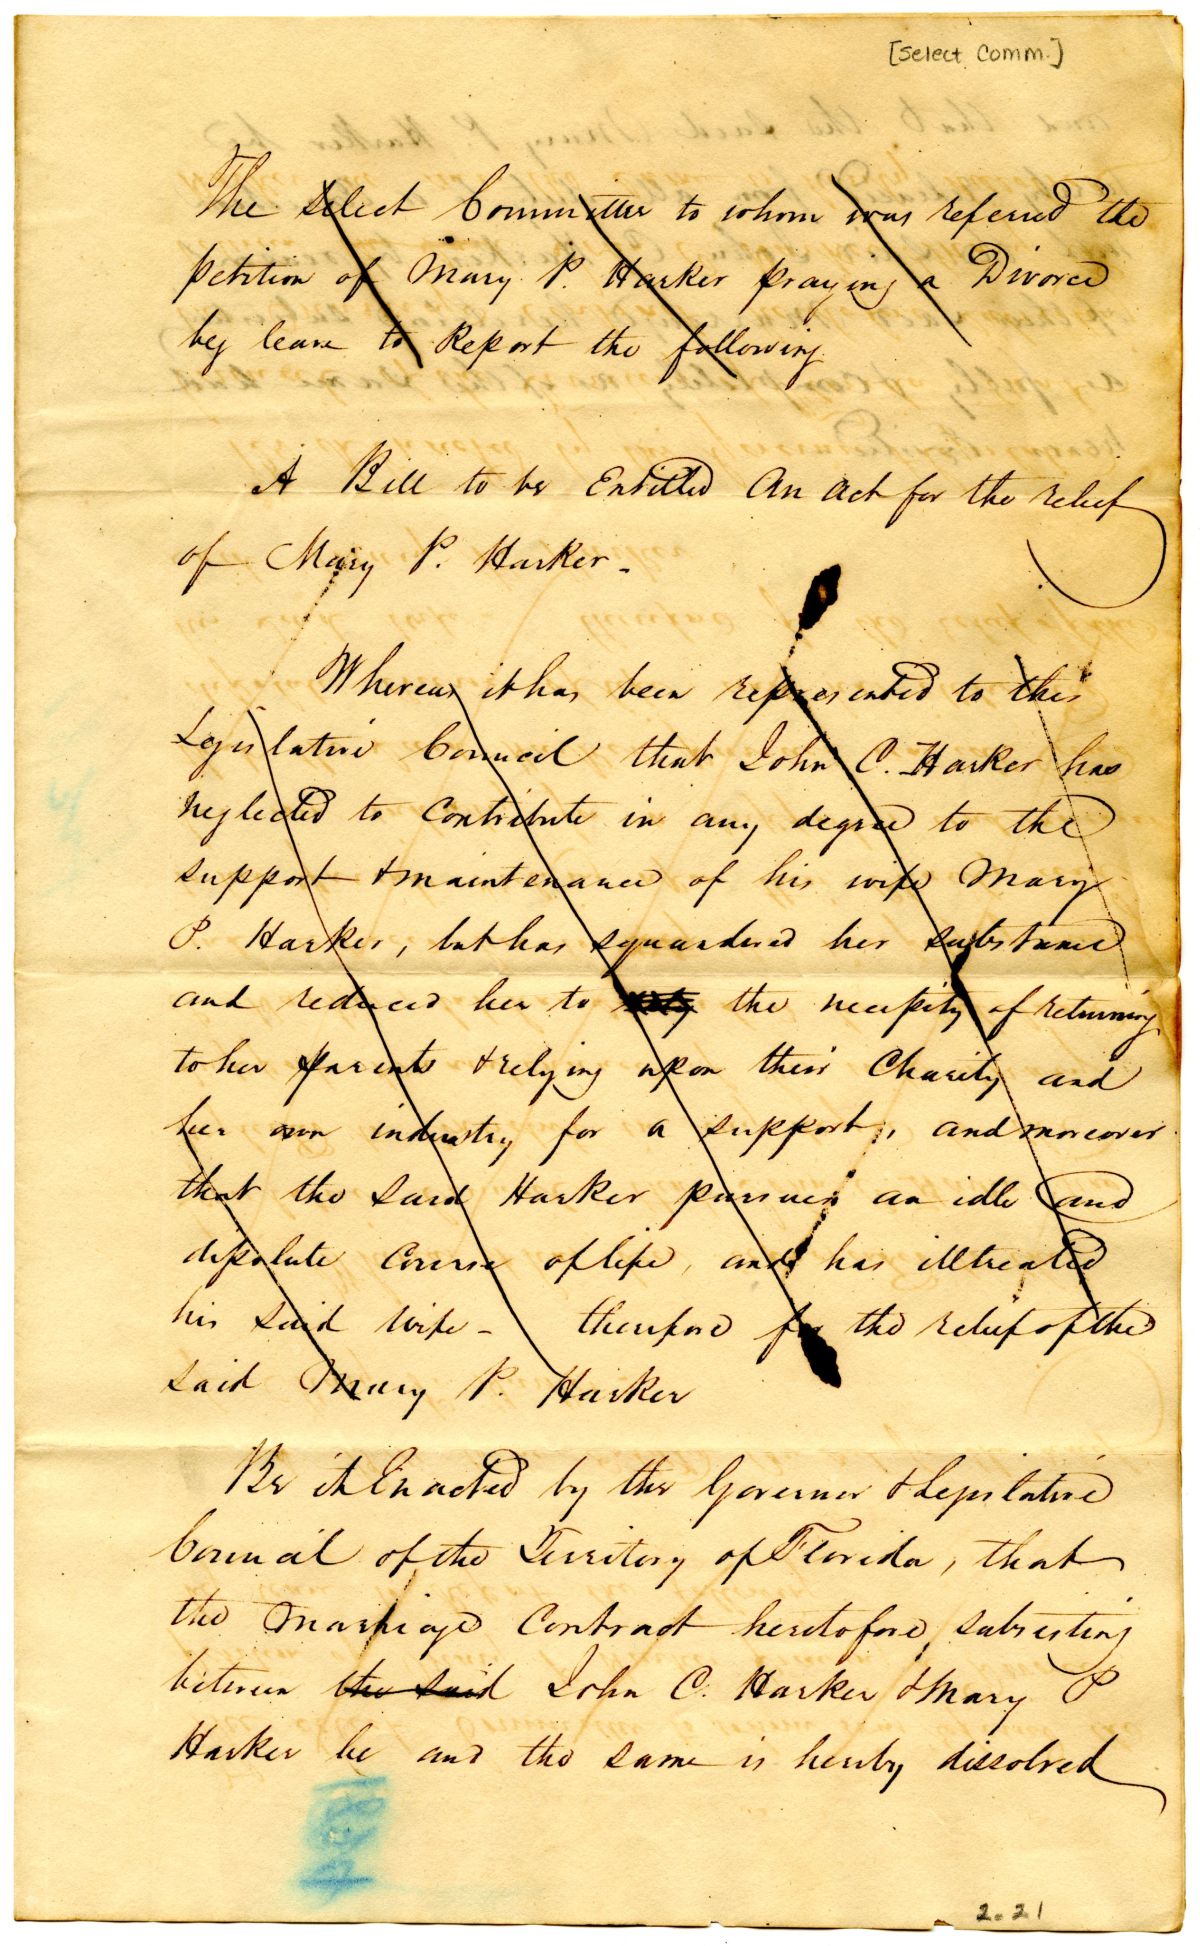 [Select Comm.]
The select Committee to whom was referred the
petition of Mary P. Harker praying a Divorce
beg leave to Report the following
A Bill to be Entitled An act for the relief
of Mary P. Harker -
Whereas it has been represented to this
Legislative Council that John C. Harker has
neglected to contribute in any degree to the
support & maintenance of his wife Mary
P. Harker, but has squandered her substance
and reduced her to the necessity of returning
to her parents & relying upon their Charity and
her own industry for a support, and moreover
that the said Harker pursues an idle and
dissolute course of life, and has illtreated
his said wife - therefore for the relief of the
said Mary P. Harker
Be it Enacted by the Governor & Legislative
Council of the Territory of Florida, that
the Marriage Contract heretofore subsisting
between the said John C. Harker & Mary P
Harker be and the same is hereby dissolved
2.21